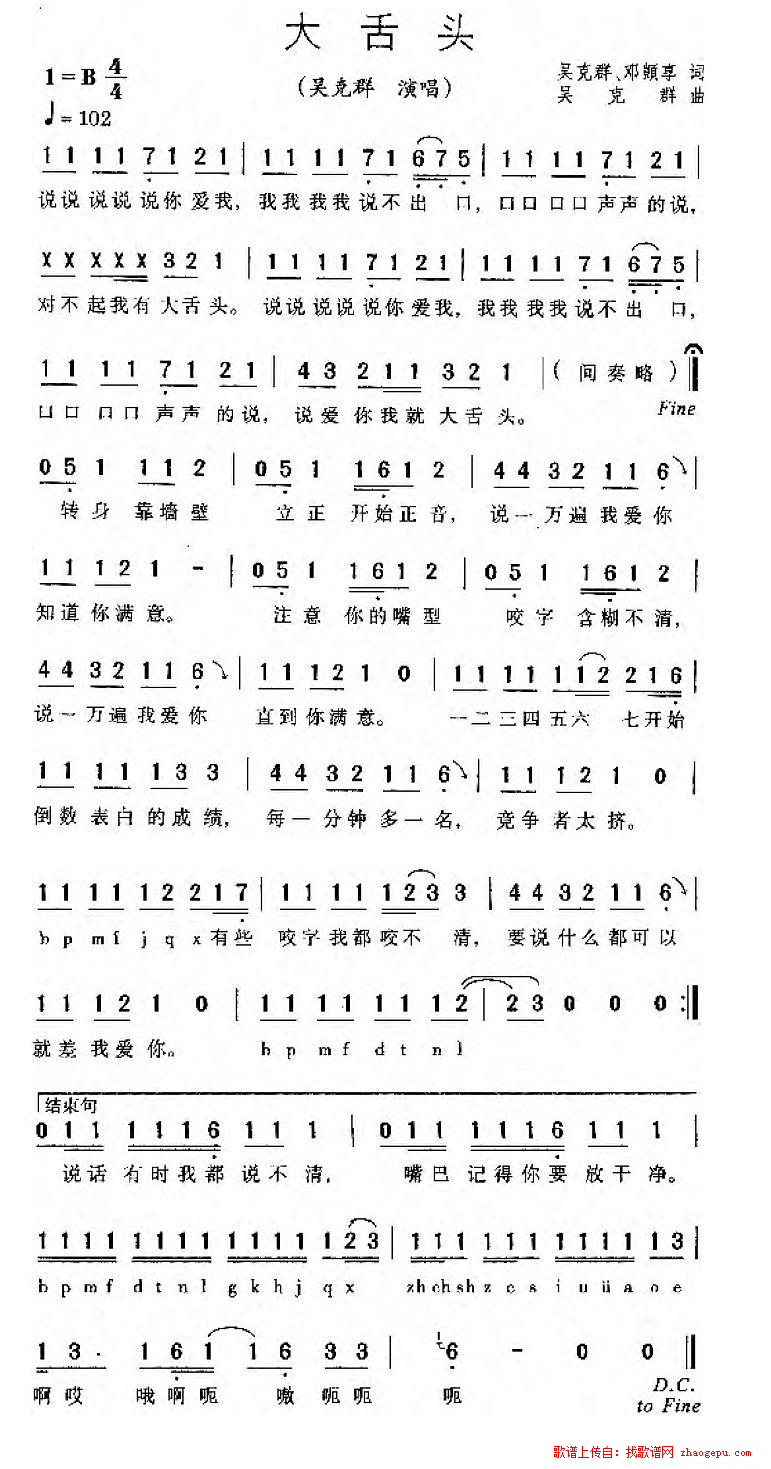 大舌头
1=B 4/4
(吴克群 演唱)
吴克群、邓颖享 词
吴克群 曲
♩=102
1 1 1 1 7 1 2 1 | 1 1 1 1 7 1 6 7 5 | 1 1 1 1 7 1 2 1 |
说说说说说你爱我, 我我我我说不出口, 口口口口声声的说,
X X X X X 3 2 1 | 1 1 1 1 7 1 2 1 | 1 1 1 1 7 1 6 7 5 |
对不起我有大舌头。说说说说说你爱我, 我我我我说不出口,
1 1 1 1 7 1 2 1 | 4 3 2 1 1 3 2 1 | (间奏略)
口口口口声声的说, 说爱你我就大舌头。 Fine
0 5 1 1 1 2 | 0 5 1 1 6 1 2 | 4 4 3 2 1 1 6 |
转身靠墙壁 立正开始正音, 说一万遍我爱你
1 1 1 2 1 - | 0 5 1 1 6 1 2 | 0 5 1 1 6 1 2 |
知道你满意。 注意你的嘴型 咬字含糊不清,
4 4 3 2 1 1 6 | 1 1 1 2 1 0 | 1 1 1 1 1 1 2 2 1 6 |
说一万遍我爱你 直到你满意。 一二三四五六 七开始
1 1 1 1 1 3 3 | 4 4 3 2 1 1 6 | 1 1 1 2 1 0 |
倒数表白的成绩, 每一分钟多一名, 竞争者太挤。
1 1 1 1 1 2 2 1 7 | 1 1 1 1 1 2 3 3 | 4 4 3 2 1 1 6 |
b p m f j q x 有些 咬字我都咬不清, 要说什么都可以
1 1 1 2 1 0 | 1 1 1 1 1 1 1 2 | 2 3 0 0 0 :||
就差我爱你。 b p m f d t n l
结束句
0 1 1 1 1 1 6 1 1 1 | 0 1 1 1 1 1 6 1 1 1 |
说话有时我都说不清, 嘴巴记得你要放干净。
1 1 1 1 1 1 1 1 1 1 1 1 1 2 3 | 1 1 1 1 1 1 1 1 1 1 1 1 3 |
b p m f d t n l g k h j q x zh ch sh z c s i u ü a o e
1 3 · 1 6 1 1 6 3 3 | 6 - 0 0 ||
啊哎 哦啊呃 嗷呃呃 呃 D.C.
to Fine
歌谱上传自：找歌谱网 zhaogepu.com